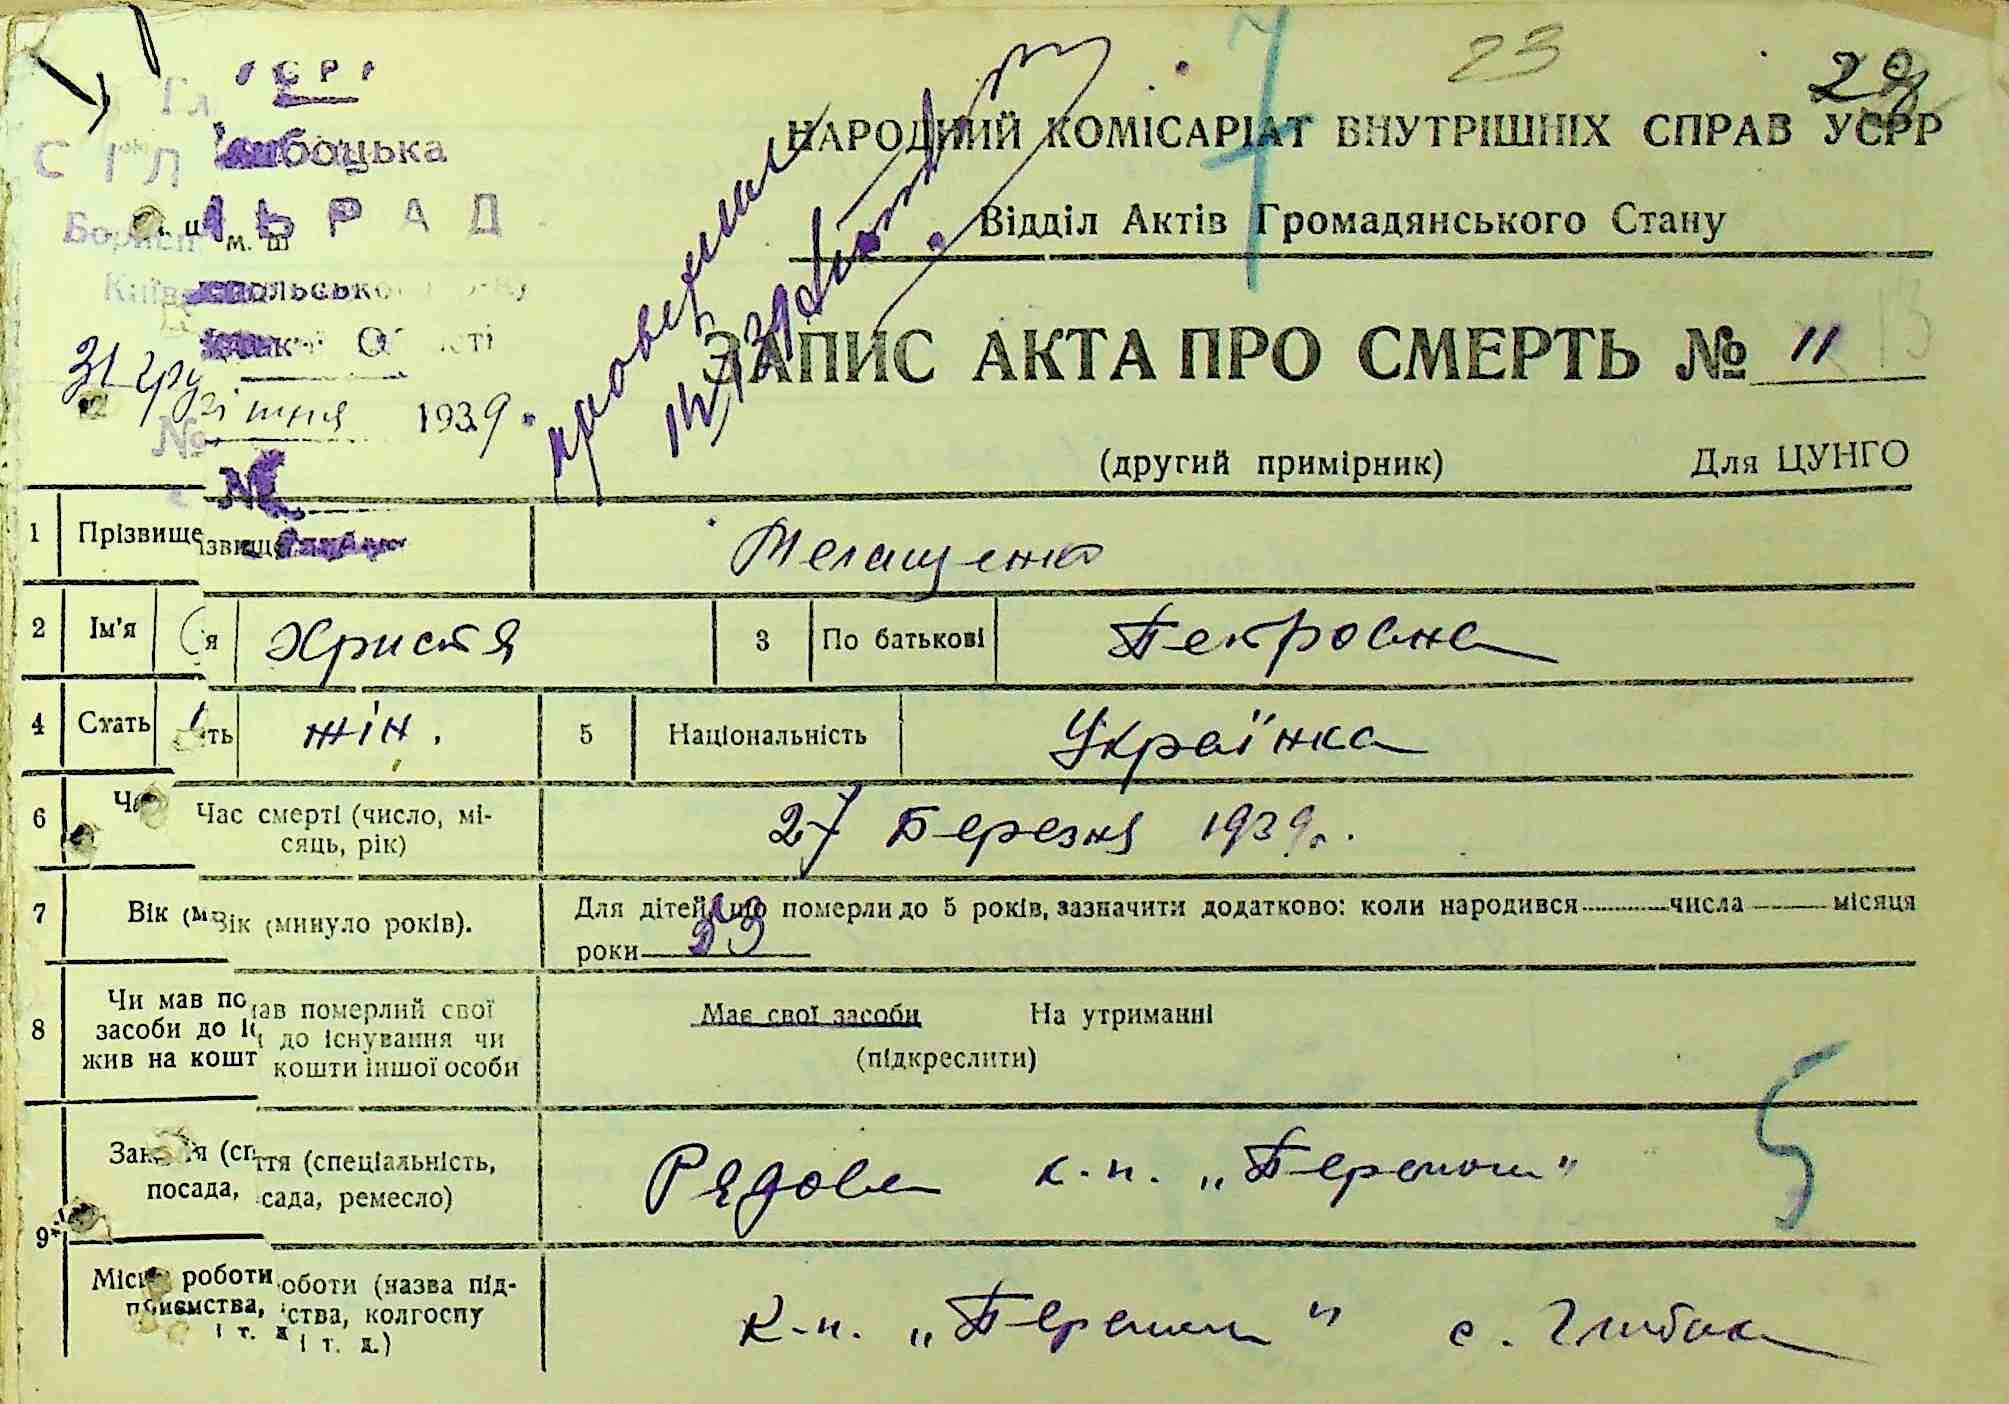 23
29
7
НАРОДНИЙ КОМІСАРІАТ ВНУТРІШНІХ СПРАВ УСРР
Відділ Актів Громадянського Стану
ЗАПИС АКТА ПРО СМЕРТЬ № 11
13
1939
(другий примірник) Для ЦУНГО
1 Прізвище Телащенко
2 Ім'я Христя 3 По батькові Петровна
4 Стать жін. 5 Національність Українка
6 Час смерті (число, мі-
сяць, рік) 27 Березня 1939 г.
7 Вік (минуло років). Для дітей, що померли до 5 років, зазначити додатково: коли народився числа місяця
роки
8 Чи мав померлий свої
засоби до існування чи
жив на кошти іншої особи
Має свої засоби На утриманні
(підкреслити)
5
9*
Заняття (спеціальність,
посада, ремесло) Рядова к-п. „Перемоги"
Місце роботи (назва під-
приємства, колгоспу
і т. д.) к-п. „Перемоги" с. Глибока